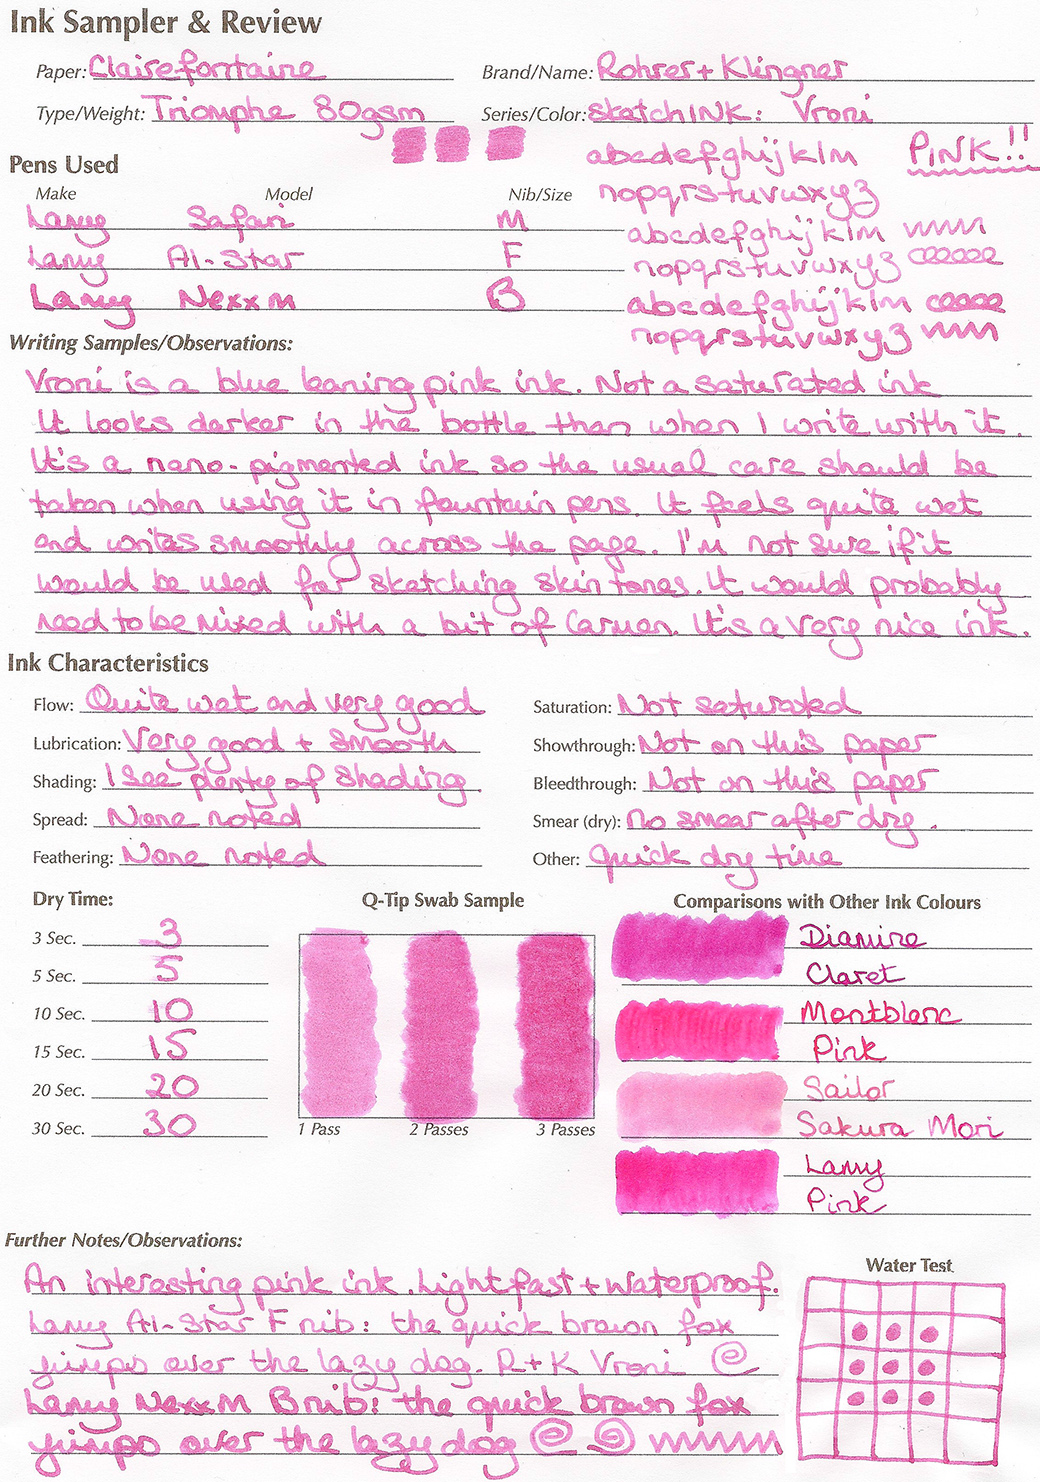 Ink Sampler & Review
Paper: Clairefontaine Brand/Name: Rohrer + Klingner
Type/Weight: Triomphe 80gsm Series/Color: SketchINK: Vroni
abcdefghijklm PINK!!
Pens Used
nopqrstuvwxyz
Make Model Nib/Size
Lamy Safari M
abcdefghijklm
Lamy Al-Star F
nopqrstuvwxyz
Lamy Nexx M B
abcdefghijklm
nopqrstuvwxyz
Writing Samples/Observations:
Vroni is a blue leaning pink ink. Not a saturated ink
It looks darker in the bottle than when I write with it.
It's a nano-pigmented ink so the usual care should be
taken when using it in fountain pens. It feels quite wet
and writes smoothly across the page. I'm not sure if it
would be used for sketching skin tones. It would probably
need to be mixed with a bit of Carmen. It's a very nice ink.
Ink Characteristics
Flow: Quite wet and very good Saturation: Not saturated
Lubrication: Very good + smooth Showthrough: Not on this paper
Shading: I see plenty of shading. Bleedthrough: Not on this paper
Spread: None noted Smear (dry): no smear after dry.
Feathering: None noted Other: quick dry time
Dry Time: Q-Tip Swab Sample Comparisons with Other Ink Colours
3 Sec. 3 Diamine
5 Sec. 5 Claret
10 Sec. 10 Montblanc
15 Sec. 15 Pink
20 Sec. 20 Sailor
30 Sec. 30 Sakura Mori
1 Pass 2 Passes 3 Passes
Lamy
Pink
Further Notes/Observations:
Water Test
An interesting pink ink. Lightfast + Waterproof.
Lamy Al-Star F nib: the quick brown fox
jumps over the lazy dog. R+K Vroni
Lamy Nexx M B nib: the quick brown fox
jumps over the lazy dog